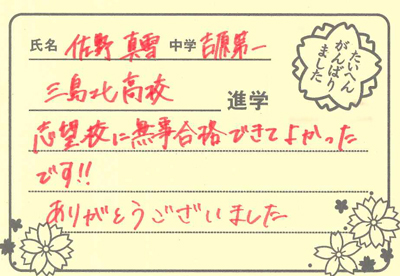 氏名 佐野 真雪 中学 吉原第一
たいへん
がんばり
ました
三島北高校 進学
志望校に無事合格できてよかった
です!!
ありがとうございました